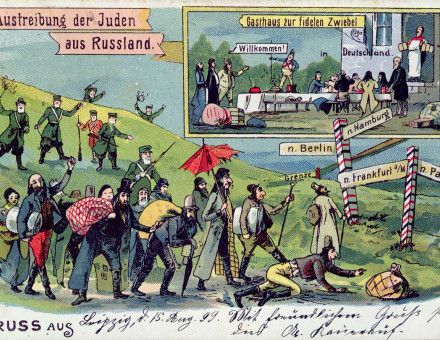 Austreibung der Juden
aus Russland.
Gasthaus zur fidelen Zwiebel
Willkommen!
in
Deutschland.
n. Hamburg
n. Berlin
n. Frankfurt a/M
n. Pa
Grenze
RUSS AUS
Leipzig, d. 15 Aug 99. Mit freundlichem Gruss